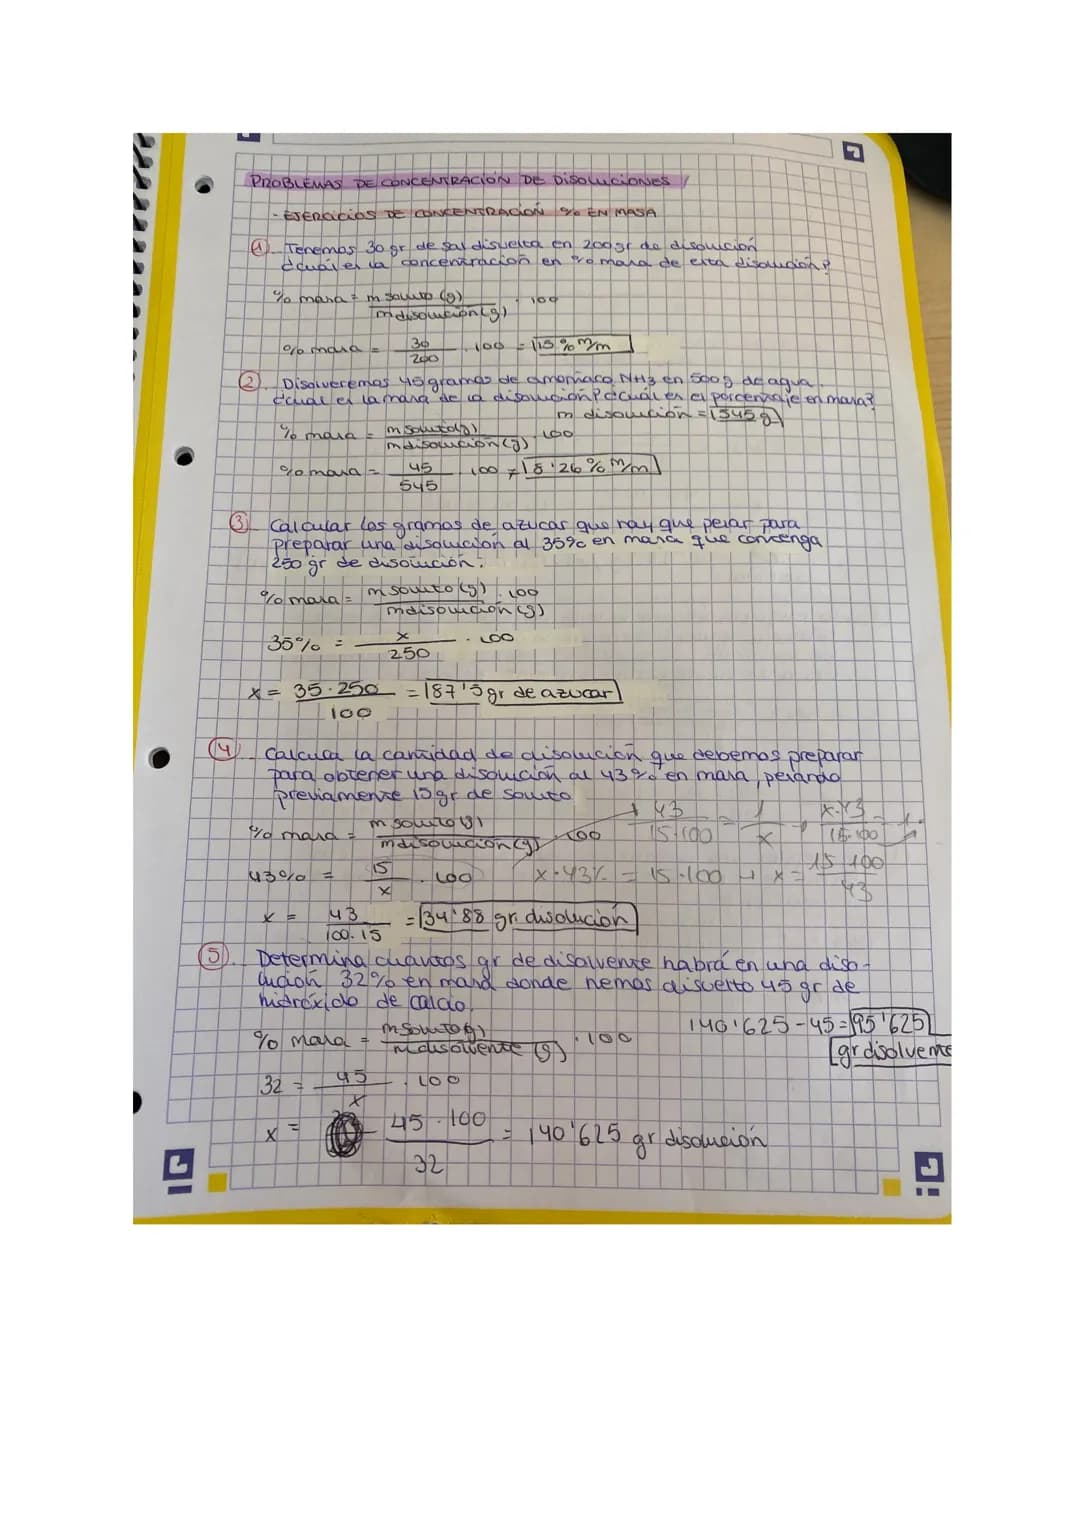 PROBLEMAS DE CONCENTRACIÓN DE DISOLUCIONES
- EJERCICIOS DE CONCENTRACIÓN % EN MASA
1 Tenemos 30 gr de sal disuelta en 200 gr de disolución
¿cuál es la concentración en % masa de esta disolución?
% masa = m soluto (g) / m disolución (g) · 100
% masa = 30 / 200 · 100 = 15 % m/m
2 Disolveremos 45 gramos de amoniaco NH3 en 500 g de agua.
¿cual es la masa de la disolución? ¿cuál es el porcentaje en masa?
m disolución = 545 g
% masa = m soluto (g) / m disolución (g) · 100
% masa = 45 / 545 · 100 = 8'26 % m/m
3 Calcular los gramos de azucar que hay que pesar para
preparar una disolución al 35% en masa que contenga
250 gr de disolución.
% masa = m soluto (g) / m disolución (g) · 100
35% = x / 250 · 100
x = 35 · 250 / 100 = 87'5 gr de azucar
4 Calcula la cantidad de disolución que debemos preparar
para obtener una disolución al 43% en masa, pesando
previamente 15 gr de soluto
% masa = m soluto (g) / m disolución (g) · 100
43 / 15·100 = 1 / x → x·43 / 15·100 = 1
43% = 15 / x · 100
x · 43% = 15·100 → x = 15·100 / 43
x = 43 / 100·15 = 34'88 gr disolución
5 Determina cuantos gr de disolvente habrá en una diso-
lución 32% en masa donde hemos disuelto 45 gr de
hidróxido de calcio.
% masa = m soluto (g) / m disolvente (g) · 100
140'625 - 45 = 95'625
gr disolvente
32 = 45 / x · 100
x = 45 · 100 / 32 = 140'625 gr disolución